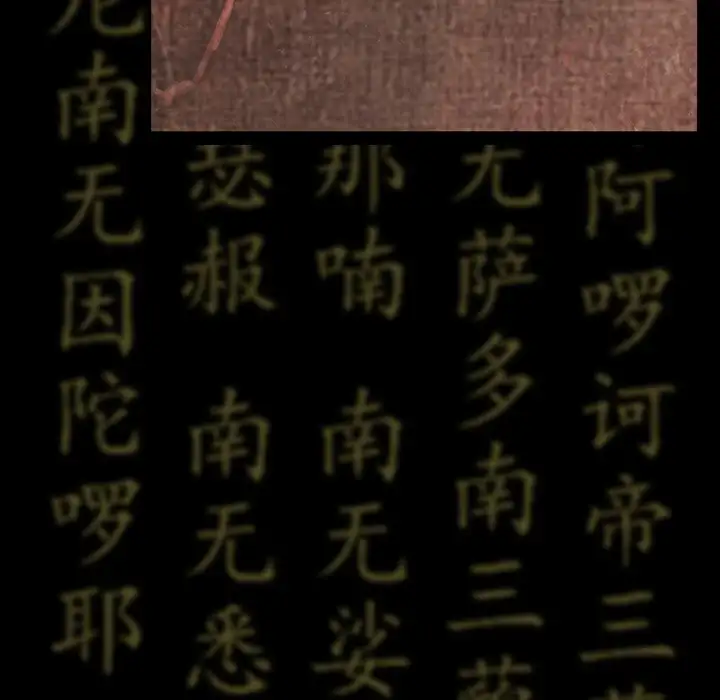 阿啰诃帝三
无萨多南三
那喃 南无娑
瑟赧 南无悉
南无因陀啰耶